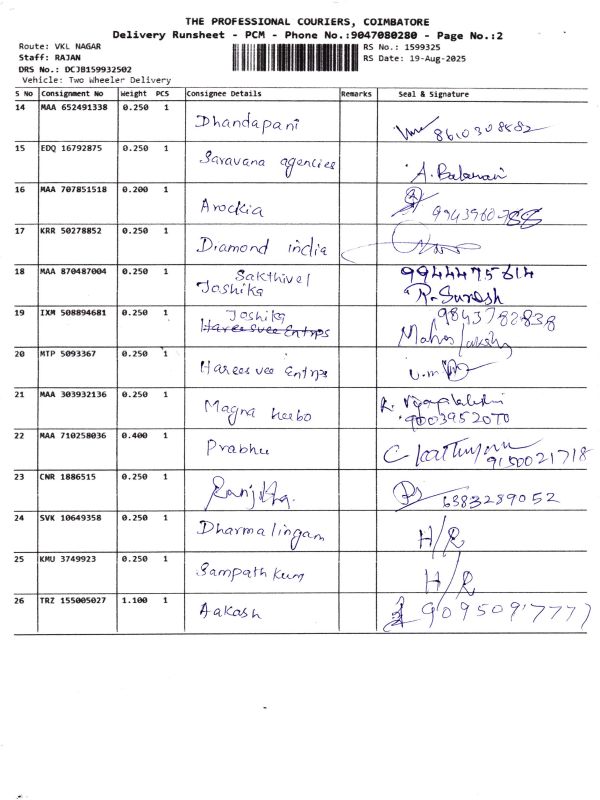 THE PROFESSIONAL COURIERS, COIMBATORE
Delivery Runsheet - PCM - Phone No.:9047080280 - Page No.:2
Route: VKL NAGAR RS No.: 1599325
Staff: RAJAN RS Date: 19-Aug-2025
DRS No.: DCJB159932502
Vehicle: Two Wheeler Delivery
S No Consignment No Weight PCS Consignee Details Remarks Seal & Signature
14 MAA 652491338 0.250 1
Dhandapani 8610308582
15 EDQ 16792875 0.250 1
Saravana agencies
A.
16 MAA 707851518 0.200 1
Arockia 9943960788
17 KRR 50278852 0.250 1
Diamond india
18 MAA 870487004 0.250 1 Sakthivel 9944475614
Joshika R. Suresh
19 IXM 508894681 0.250 1 Joshika 9843782838
Harees vee Entrps
20 MTP 5093367 0.250 1
Harees vee Entrps
21 MAA 303932136 0.250 1
Magna 9003952070
22 MAA 710258036 0.400 1
Prabhu 9150021718
23 CNR 1886515 0.250 1
Ranjitha 6383289052
24 SVK 10649358 0.250 1
Dharmalingam H/R
25 KMU 3749923 0.250 1
Sampath kum H/R
26 TRZ 155005027 1.100 1
Aakash 9095097777